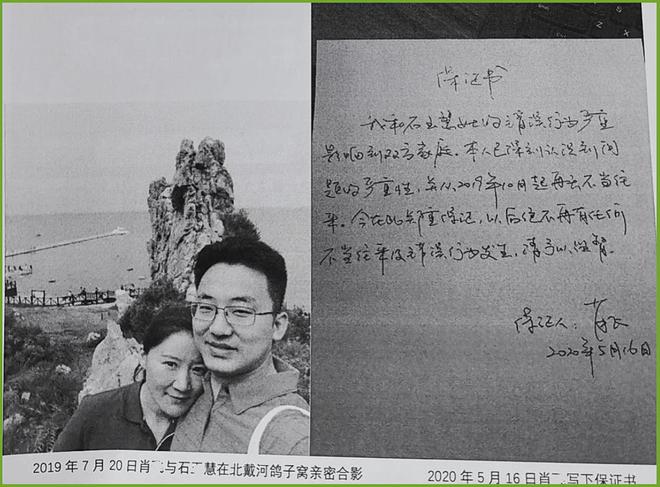 保证书
我和石 慧女士的错误行为严重
影响到双方家庭。本人已深刻认识到问
题的严重性,并从2019年10月起再无不当往
来。今在此郑重保证,以后绝不再有任何
不当往来及错误行为发生,请予以监督。
保证人:
2020年5月16日
2019 年 7 月 20 日肖 与石 慧在北戴河鸽子窝亲密合影
2020 年 5 月 16 日肖 写下保证书